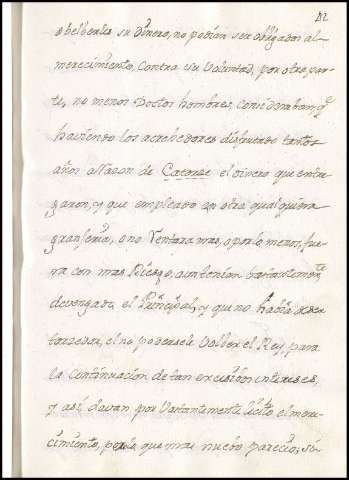 42
obelberles su dinero, no podian ser obligados al
merecimiento, contra su Voluntad, por otra par-
te, no menos Doctos hombres, consideraban, q.e
haviendo los acrehedores disfrutado tantos
años a Razon de Catorze el dinero que entre
garon, y que empleado en otra qualquiera
grangeria, o no Ventara mas, o por lo menos, fue-
ra con mas Riesgo, aun tenian bastantem.te
devengado el Principal, y que no havia
el no poderseles bolber el Rey, para
la continuacion de tan excesibos intereses,
y asi davan por bastantemente licito el mere-
cimiento, que mas nuebo parecio, si-